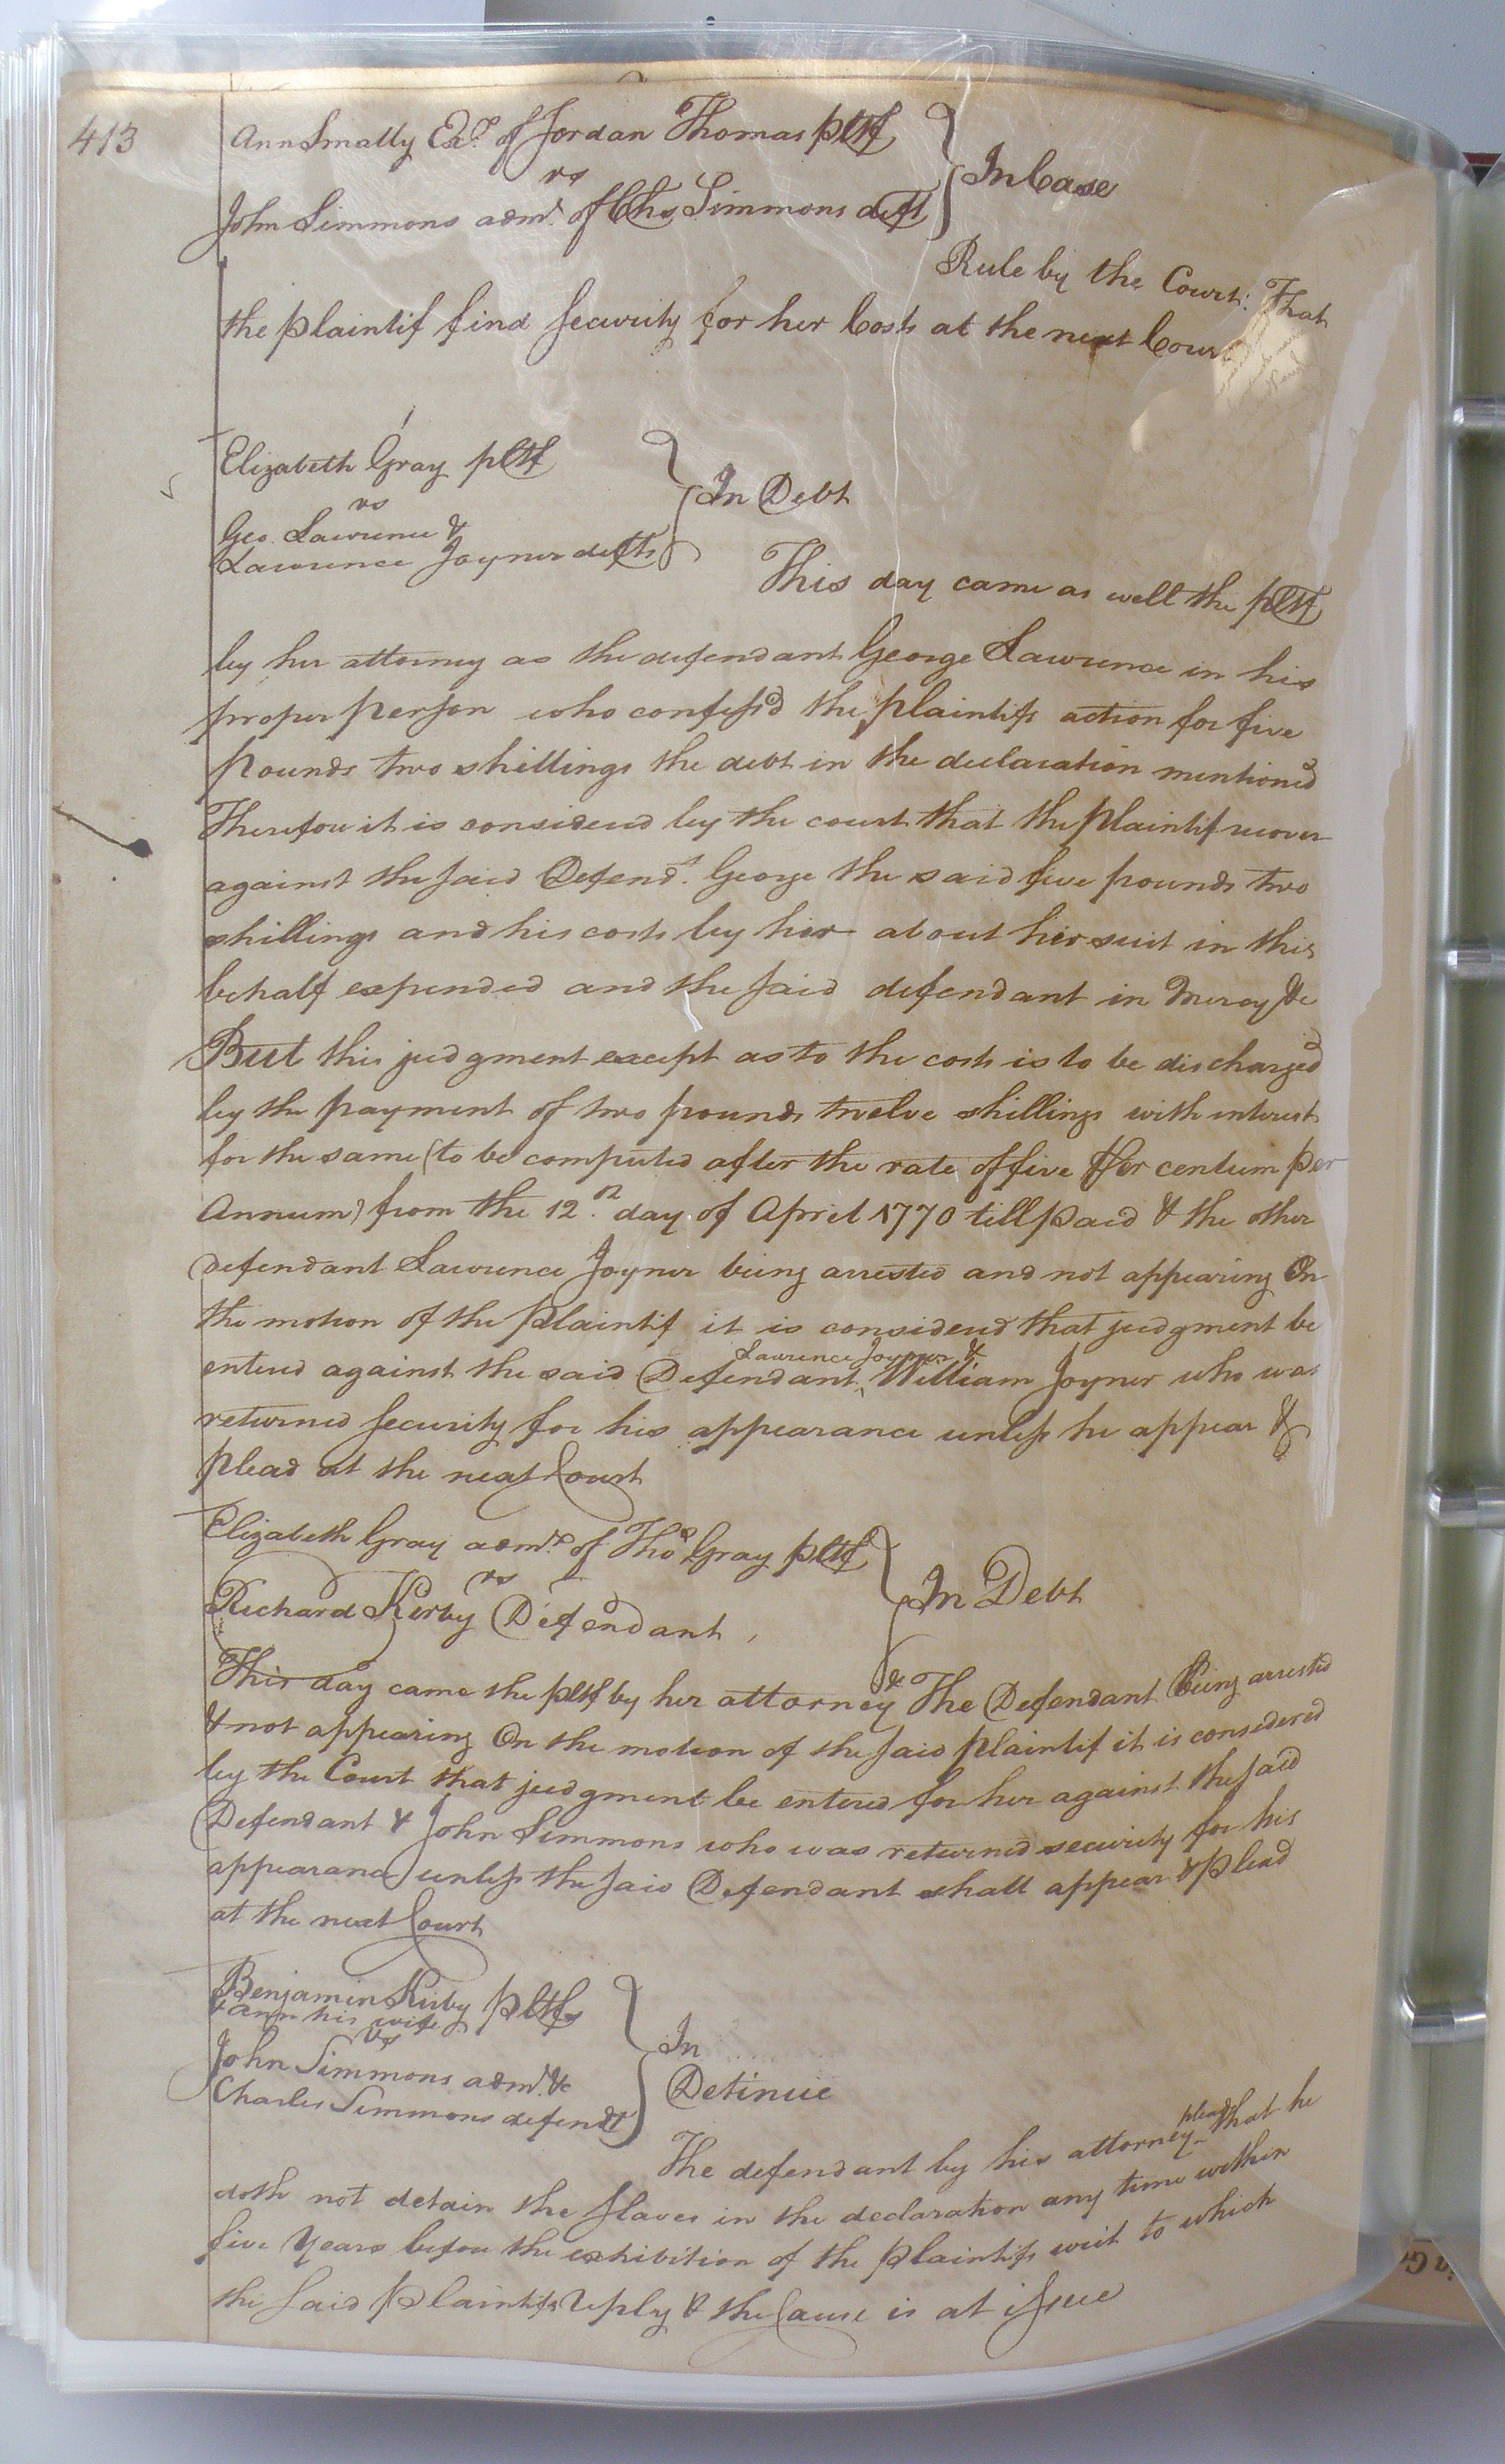 413
Ann Smally Ex.x of Jordan Thomas pltf
vs
John Simmons adm.r of Chs Simmons deft
In Case
Rule by the Court: That
the plaintif find security for her Costs at the next Court
Elizabeth Gray pltf
vs
Geo. Lawrence &
Lawrence Joyner defts
In Debt
This day came as well the pltf
by her attorney as the defendant George Lawrence in his
proper person who confess'd the plaintifs action for five
pounds two shillings the debt in the declaration mentioned
Therefore it is considered by the court that the plaintif recover
against the said Defend.t George the said five pounds two
shillings and his costs by her about her suit in this
behalf expended and the said defendant in Mercy &c
But this judgment except as to the costs is to be discharged
by the payment of two pounds twelve shillings with interest
for the same (to be computed after the rate of five per centum per
Annum) from the 12.th day of April 1770 till paid & the other
defendant Lawrence Joyner being arrested and not appearing On
the motion of the plaintif it is considered that judgment be
Lawrence Joyner &
entered against the said Defendant ‸ William Joyner who was
returned security for his appearance unless he appear &
plead at the next Court
Elizabeth Gray adm.x of Tho.s Gray pltf
vs
Richard Kerby Defendant
In Debt
This day came the pltf by her attorney & The Defendant Being arrested
& not appearing On the motion of the said plaintif it is considered
by the Court that judgment be entered for her against the said
Defendant & John Simmons who was returned security for his
appearance unless the said Defendant shall appear & plead
at the next Court
Benjamin Kirby pltfs
& Ann his wife
Vs
John Simmons adm.r &c
Charles Simmons defendt
In
Detinue
The defendant by his attorney plead that he
doth not detain the slaves in the declaration any time within
five Years before the exhibition of the plaintifs writ to which
the said Plaintifs Reply & the Cause is at issue